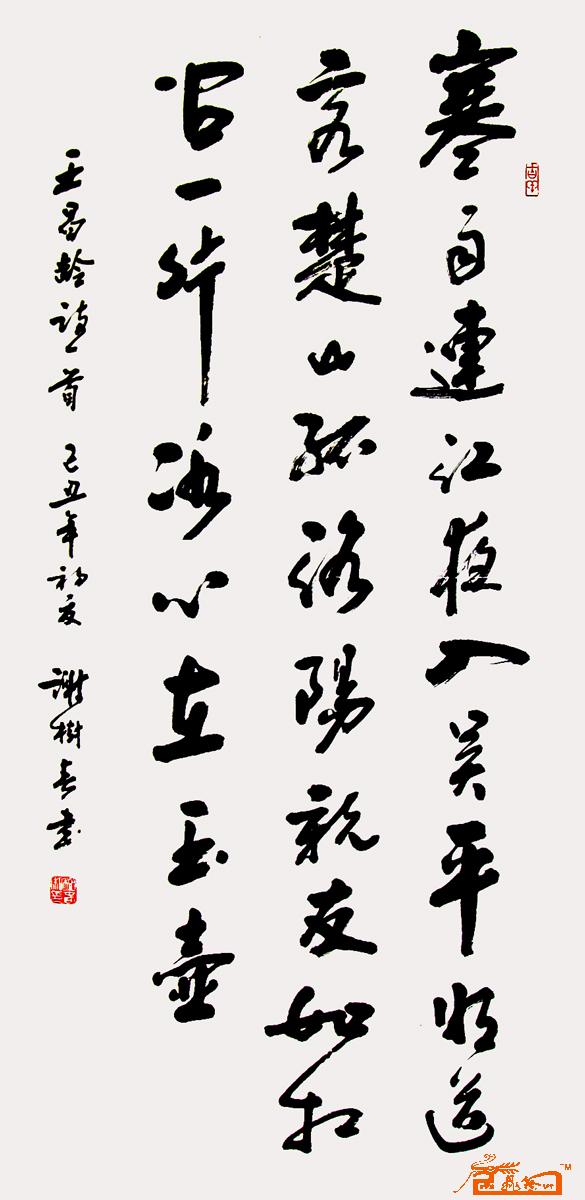 寒雨連江夜入吴平明送
客楚山孤洛陽親友如相
问一片冰心在玉壺
王昌齡詩一首 己丑年初夏 謝樹春書